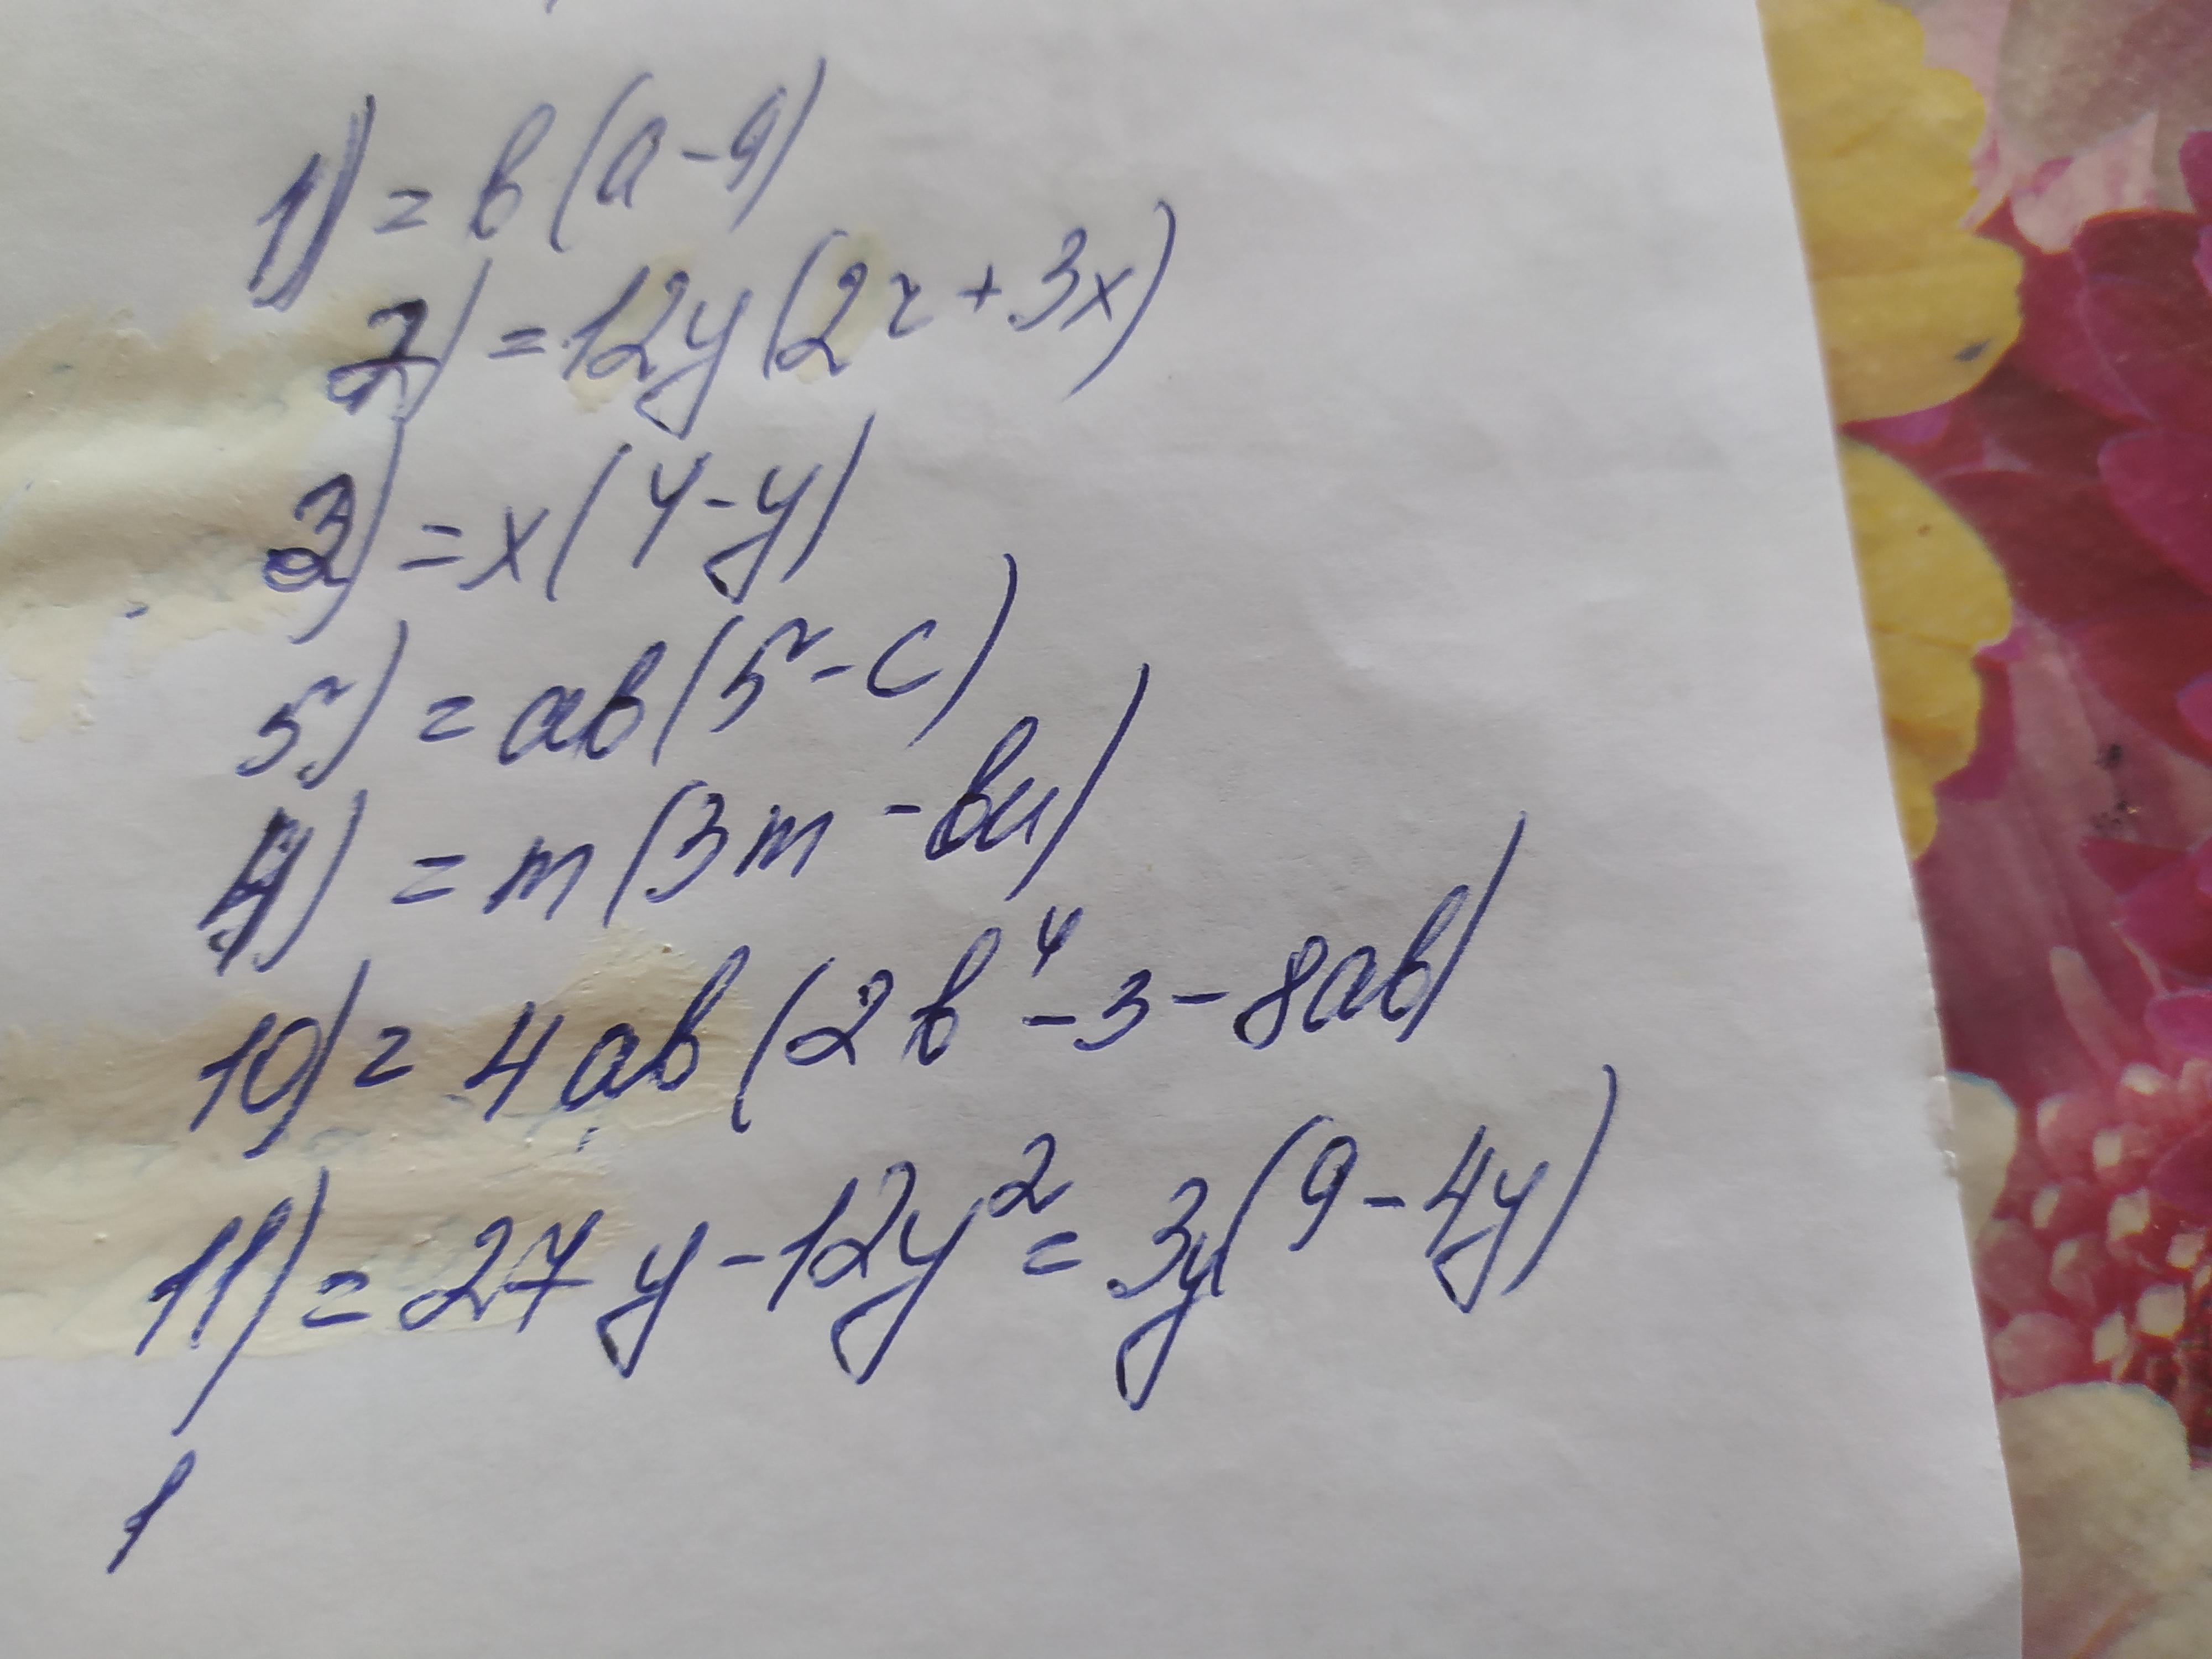 1) = b(a-9)
7) = 12y(2z+3x)
3) = x(4-y)
5) = ab(5-c)
4) = m(3m-bn)
10) = 4ab(2b⁴-3-8ab)
11) = 27y-12y² = 3y(9-4y)
1